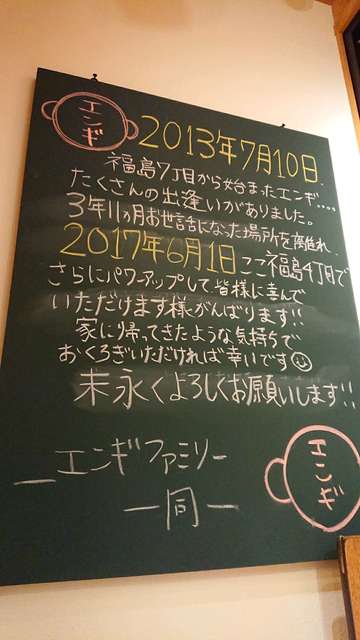 エンギ
2013年7月10日、
福島7丁目から始まったエンギ.....
たくさんの出逢いがありました。
3年11ヵ月お世話になった場所を離れ、
2017年6月1日ここ福島4丁目で
さらにパワーアップして皆様に喜んで
いただけます様がんばります!!
家に帰ってきたような気持ちで
おくろぎいただければ幸いです
末永くよろしくお願いします!!
エンギファミリー
一同
エンギ